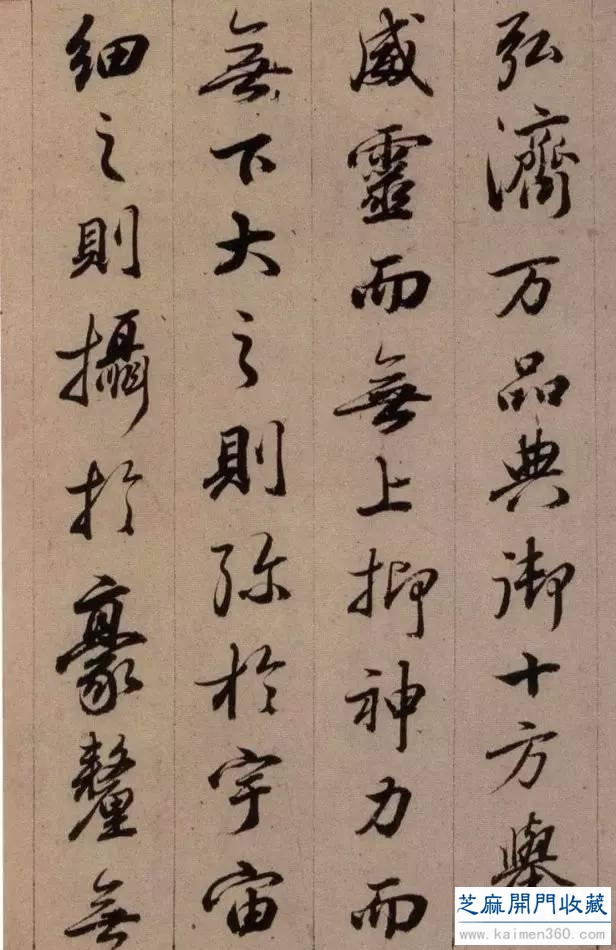 弘濟万品典御十方舉
威靈而無上抑神力而
無下大之則弥於宇宙
細之則攝於豪釐無
芝麻開門收藏
www.kaimen360.com